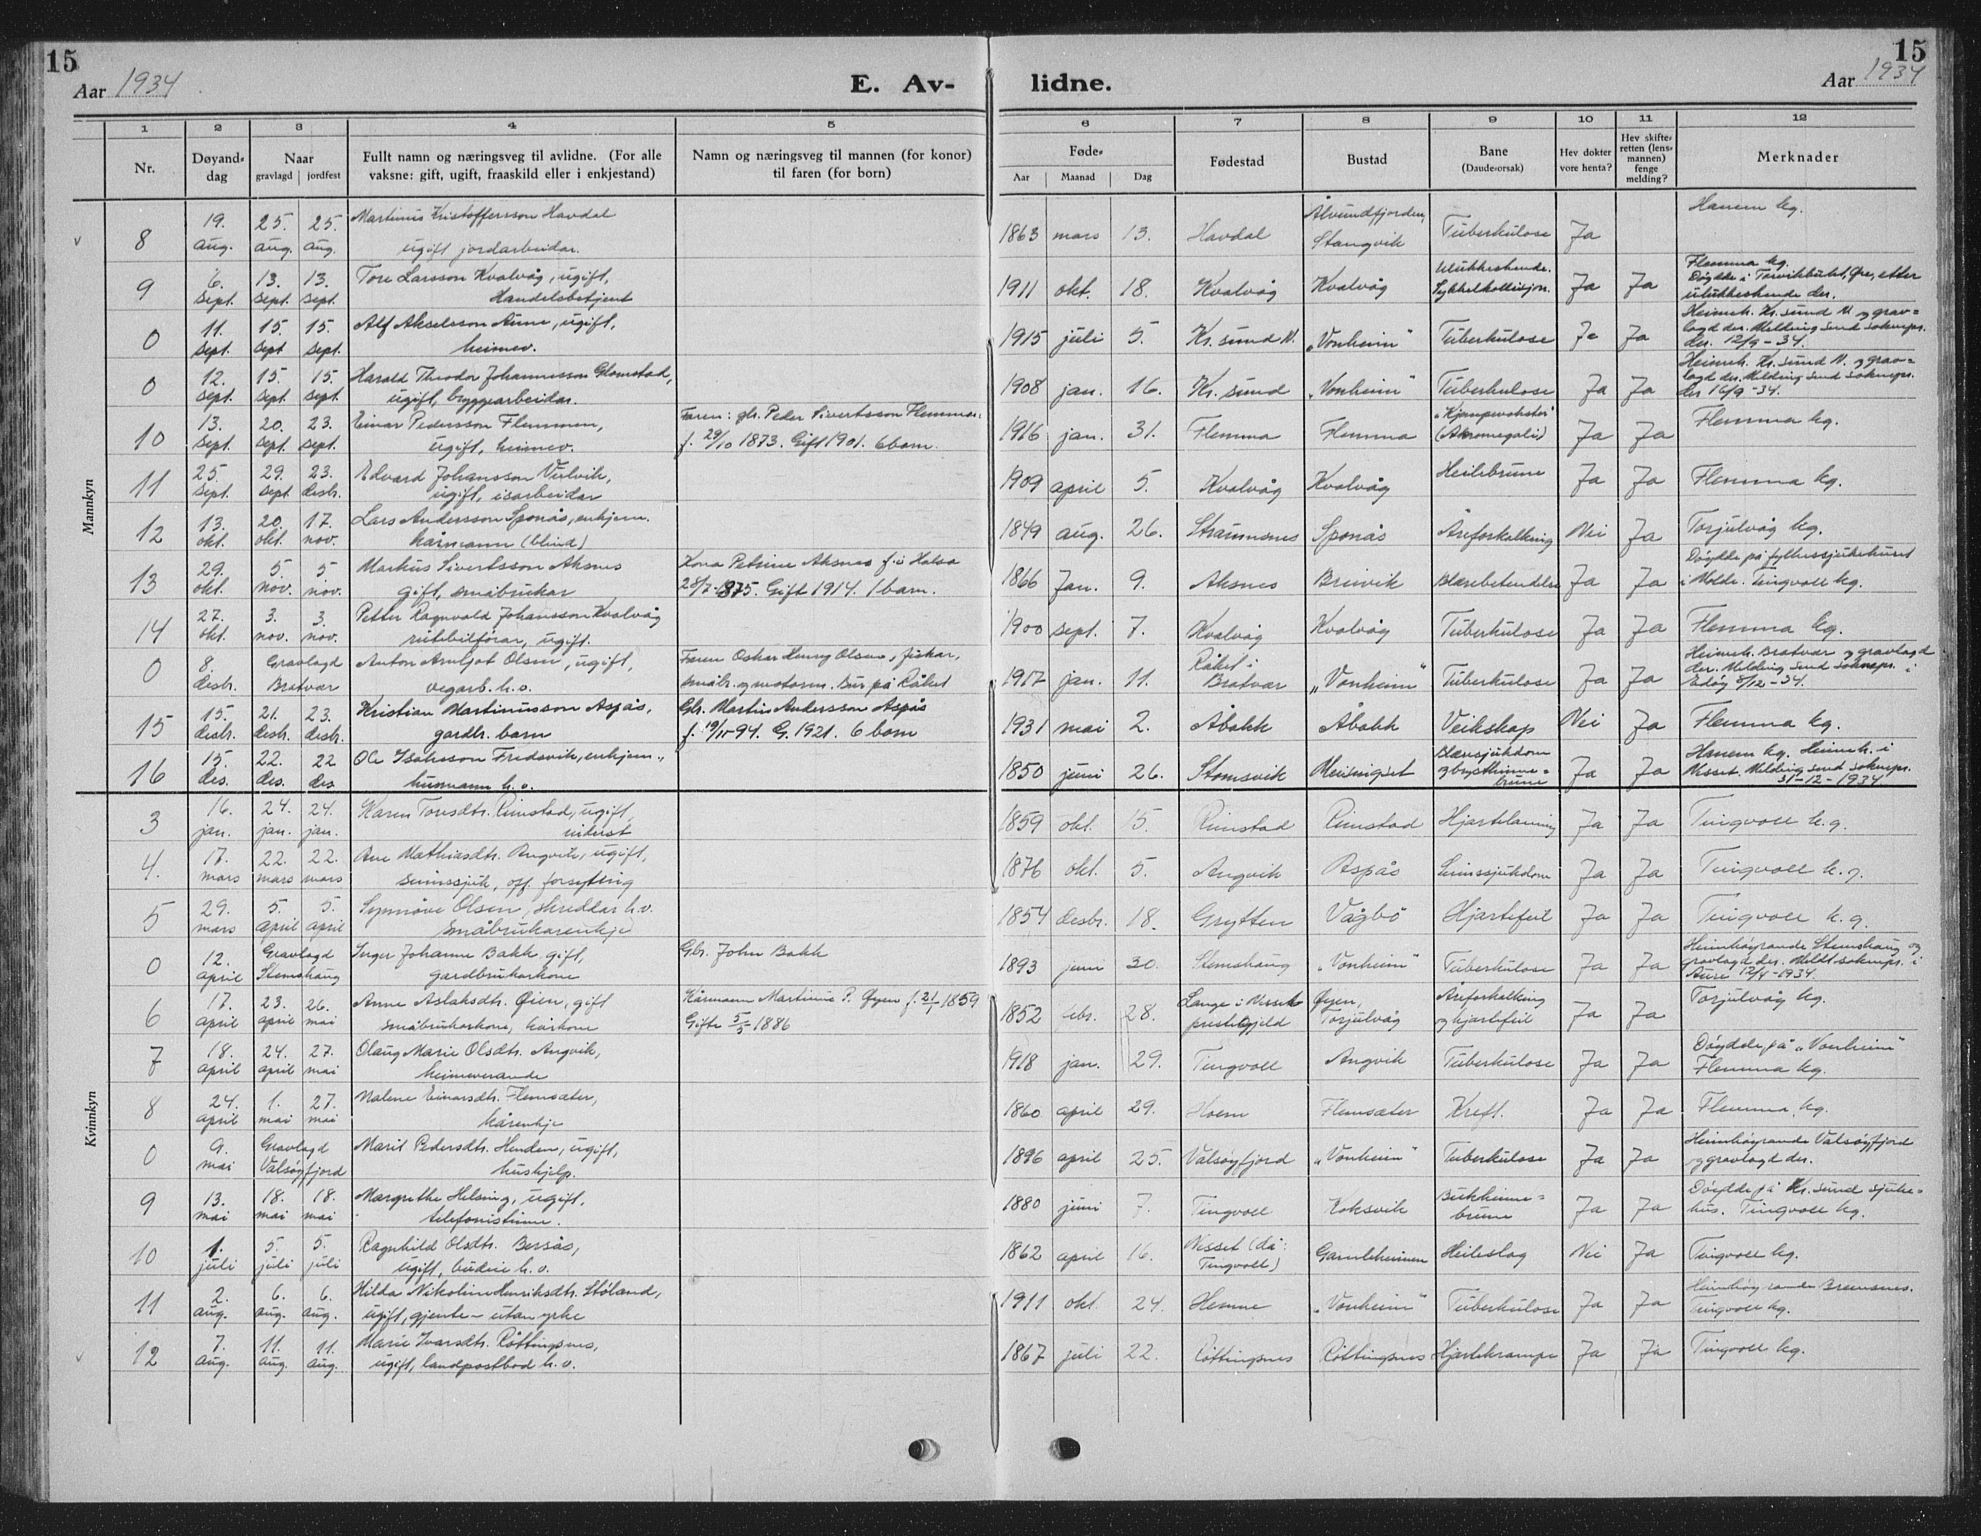 15
15
Aar 1934
E. Av-
lidne.
Aar 1934
1 2 3 4 5 6 7 8 9 10 11 12
Nr.
Døyand-
dag
Naar
gravlagd jordfest
Fullt namn og næringsveg til avlidne. (For alle
vaksne: gift, ugift, fraaskild eller i enkjestand)
Namn og næringsveg til mannen (for konor)
til faren (for born)
Føde-
Aar Maanad Dag
Fødestad
Bustad
Bane
(Daude-orsak)
Hev dokter
vore henta?
Hev skifte-
retten (lens-
mannen)
fenge
melding?
Merknader
Mannkyn
19. 25. 25. Martinus Kristoffersson Havdal Ålvundfjorden, Hanem kg.
8 aug. aug. aug. ugift jordarbeidar. 1863 mars 13. Havdal Stangvik Tuberkulose Ja
6. 13. 13. Tore Larsson Kvalvåg, ugift, Ulukkeshende. Flemma kg.
9 sept. sept. sept. Handelsbetjent 1911 okt. 18. Kvalvåg Kvalvåg Sykkelkollisjon. Ja Ja Døydde i Øre, etter
ulukkeshende der.
11. 15. 15. Alf Akselsson Aune, ugift, Heimeh. Kr. sund N. og grav-
0 sept. sept sept. heimev. 1915 juli 5. Kr. sund N. „Vonheim" Tuberkulose Ja Ja lagd der. Melding send soknepr.
der. 12/9-34.
12. 15. 15. Harald Theodor Johannesson Glomstad, Heimeh. Kr. sund N. og grav-
0 sept. sept. sept. ugift, bryggearbeidar. 1908 jan. 16. Kr. sund „Vonheim" Tuberkulose Ja Ja lagd der. Melding send soknepr.
der 16/9-34.
13. 20. 23. Einar Pedersson Flemmen, Faren: gbr. Peder Sivertsson Flemmen „Kjempevokster"
10 sept. sept. sept. ugift, heimev. f. 29/10 1873. Gift 1901. 6 born. 1916 jan. 31. Flemma Flemma (Akromegali) Ja Ja Flemma kg.
25. 29. 23. Edvard Johansson Vulvik,
11 sept. sept. desbr. ugift, isarbeidar 1909 april 5. Kvalvåg Kvalvåg Heilebrune Ja Ja Flemma kg.
13. 20. 17. Lars Andersson Sponås, enkjem.
12 okt. okt. nov. kårmann (blind) 1849 aug. 26. Straumsnes Sponås Åreforkalkning Nei Ja Torjulvåg kg.
29. 5. 5 Markus Sivertsson Aksnes Kona Petrine Aksnes f. i Halsa Døydde på fylkessjukehuset
13 okt. nov. nov. gift, småbrukar 28/7-1875. Gift 1914. 1 barn. 1866 Jan. 9. Aksnes Breivik Blærebetendelse Ja Ja i Molde. Tingvoll kg.
27. 3. 3. Petter Ragnvald Johansson Kvalvåg
14 okt. nov. nov. rutebilførar, ugift. 1900 sept. 7. Kvalvåg Kvalvåg Tuberkulose Ja Ja Flemma kg.
8. Gravlagd Anton Arnljot Olsen, ugift, Faren Oskar Henry Olsen, fiskar, Råket i Heimeh. Bratvær og gravlagd
0 desbr. Bratvær vegarb. h.v. småbr. og motorm. Bur på Råket 1917 jan. 11. Bratvær „Vonheim" Tuberkulose Ja Ja der. Melding send soknepr. i
Edøy 8/12-34.
15. 21. 23. Kristian Martinusson Aspås, Gbr. Martin Andersson Aspås
15 desbr. desbr. desbr. gardbr. barn f. 19/11-94. G. 1921. 6 born 1931 mai 2. Åbakk Åbakk Veikskap Nei Ja Flemma kg.
15. 22. 22 Ole Isaksson Fredsvik, enkjem., Blæresjukdom Hanem kg. Heimeh. i
16 des. des. des husmann h.v. 1850 juni 26. Stomsvik og brysthinne- Ja Ja Nesset. Melding send soknepr.
brune 31-12-1934.
Kvinnkyn
16. 24. 24. Karen Toresdtr. Rimstad, ugift,
3 jan. jan. jan. 1859 okt. 15. Rimstad Rimstad Hjartelaming Ja Ja Tingvoll k.g.
17. 22. 22. Ane Mathiasdtr. Angvik, ugift,
4. mars mars mars sinnssjuk, off. forsyting 1876 okt. 5. Angvik Aspås Sinnssjukdom Ja Ja Tingvoll k.g.
29. 5. 5. Synnøve Olsen, skreddar h.v.
5 mars april april småbrukarenkje 1854 desbr. 18. Grytten Vågbø Hjartefeil Ja Ja Tingvoll k.g.
12. Gravlagd Inger Johanne Bakk gift, Gbr. John Bakk Heimhøyrande Stemshaug og
0 april Stemshaug gardbrukarkone 1893 juni 30. Stemshaug „Vonheim" Tuberkulose Ja Ja gravlagd der. Meldt soknepr. i
Aure 12/4-1934.
17. 23. 26. Anne Aslaksdtr. Øien, gift Kårmann Martinus P. Øyen f. 21/1 1859 Lange i Nesset Øyen, Åreforkalking Torjulvåg kg.
6 april april mai småbrukarkone, kårkone Gifte 5/5 1886 1852 28. prestegjeld Torjulvåg og hjartefeil Ja Ja
18. 24. 27. Olaug Marie Olsdtr. Angvik, Døydde på „Vonheim"
7 april april mai heimeverande 1918 jan. 29. Tingvoll Angvik Tuberkulose Ja Ja Flemma kg.
24. 1. 27. Malene Einarsdtr. Flemsæter,
8 april mai mai kårenkje 1860 april 29. Hoem Flemsæter Kreft. Ja Ja Flemma kg.
9. Gravlagd Marit Pedersdtr. Henden, ugift, Heimhøyrande Valsøyfjord
0 mai Valsøyfjord hushjelp. 1896 april 25. Valsøyfjord „Vonheim" Tuberkulose Ja Ja og gravlagd der.
13. 18. 18. Margrethe Helsing, ugift, Bukhinne- Døydde på Kr. sund sjuke-
9 mai mai mai telefonistinne. 1880 juni 7. Tingvoll Koksvik brune Ja Ja hus. Tingvoll kg.
1. 5. 5. Ragnhild Olsdtr. Bersås, Nesset (då
10 juli juli juli ugift, budeie h.v. 1862 april 16. Tingvoll) Gamleheimen Heileslag Nei Ja Tingvoll kg.
2. 6. 6. Hilda Nikoline Henriksdtr. Støland, Heimhøyrande Bremsnes.
11 aug. aug. aug. ugift, gjente - utan yrke 1911 okt. 24. Hemne „Vonheim" Tuberkulose Ja Ja Tingvoll kg.
7. 11. 11. Marie Ivarsdtr. Røttingsnes,
12 aug. aug. aug. ugift, landpostbod h.v. 1867 juli 22. Røttingsnes Røttingsnes Hjartekrampe Ja Ja Tingvoll kg.